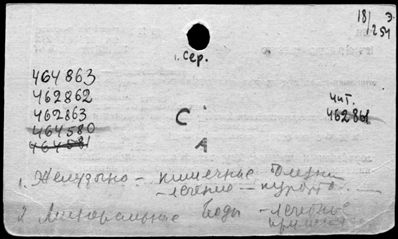 18/ Э
251
1 сер.
464863
462862
462863
464580
464581
С
А
чит.
462861
1. Желудочно - кишечные болезни
- лечение - курорты
2. Минеральные воды - лечебное
применение